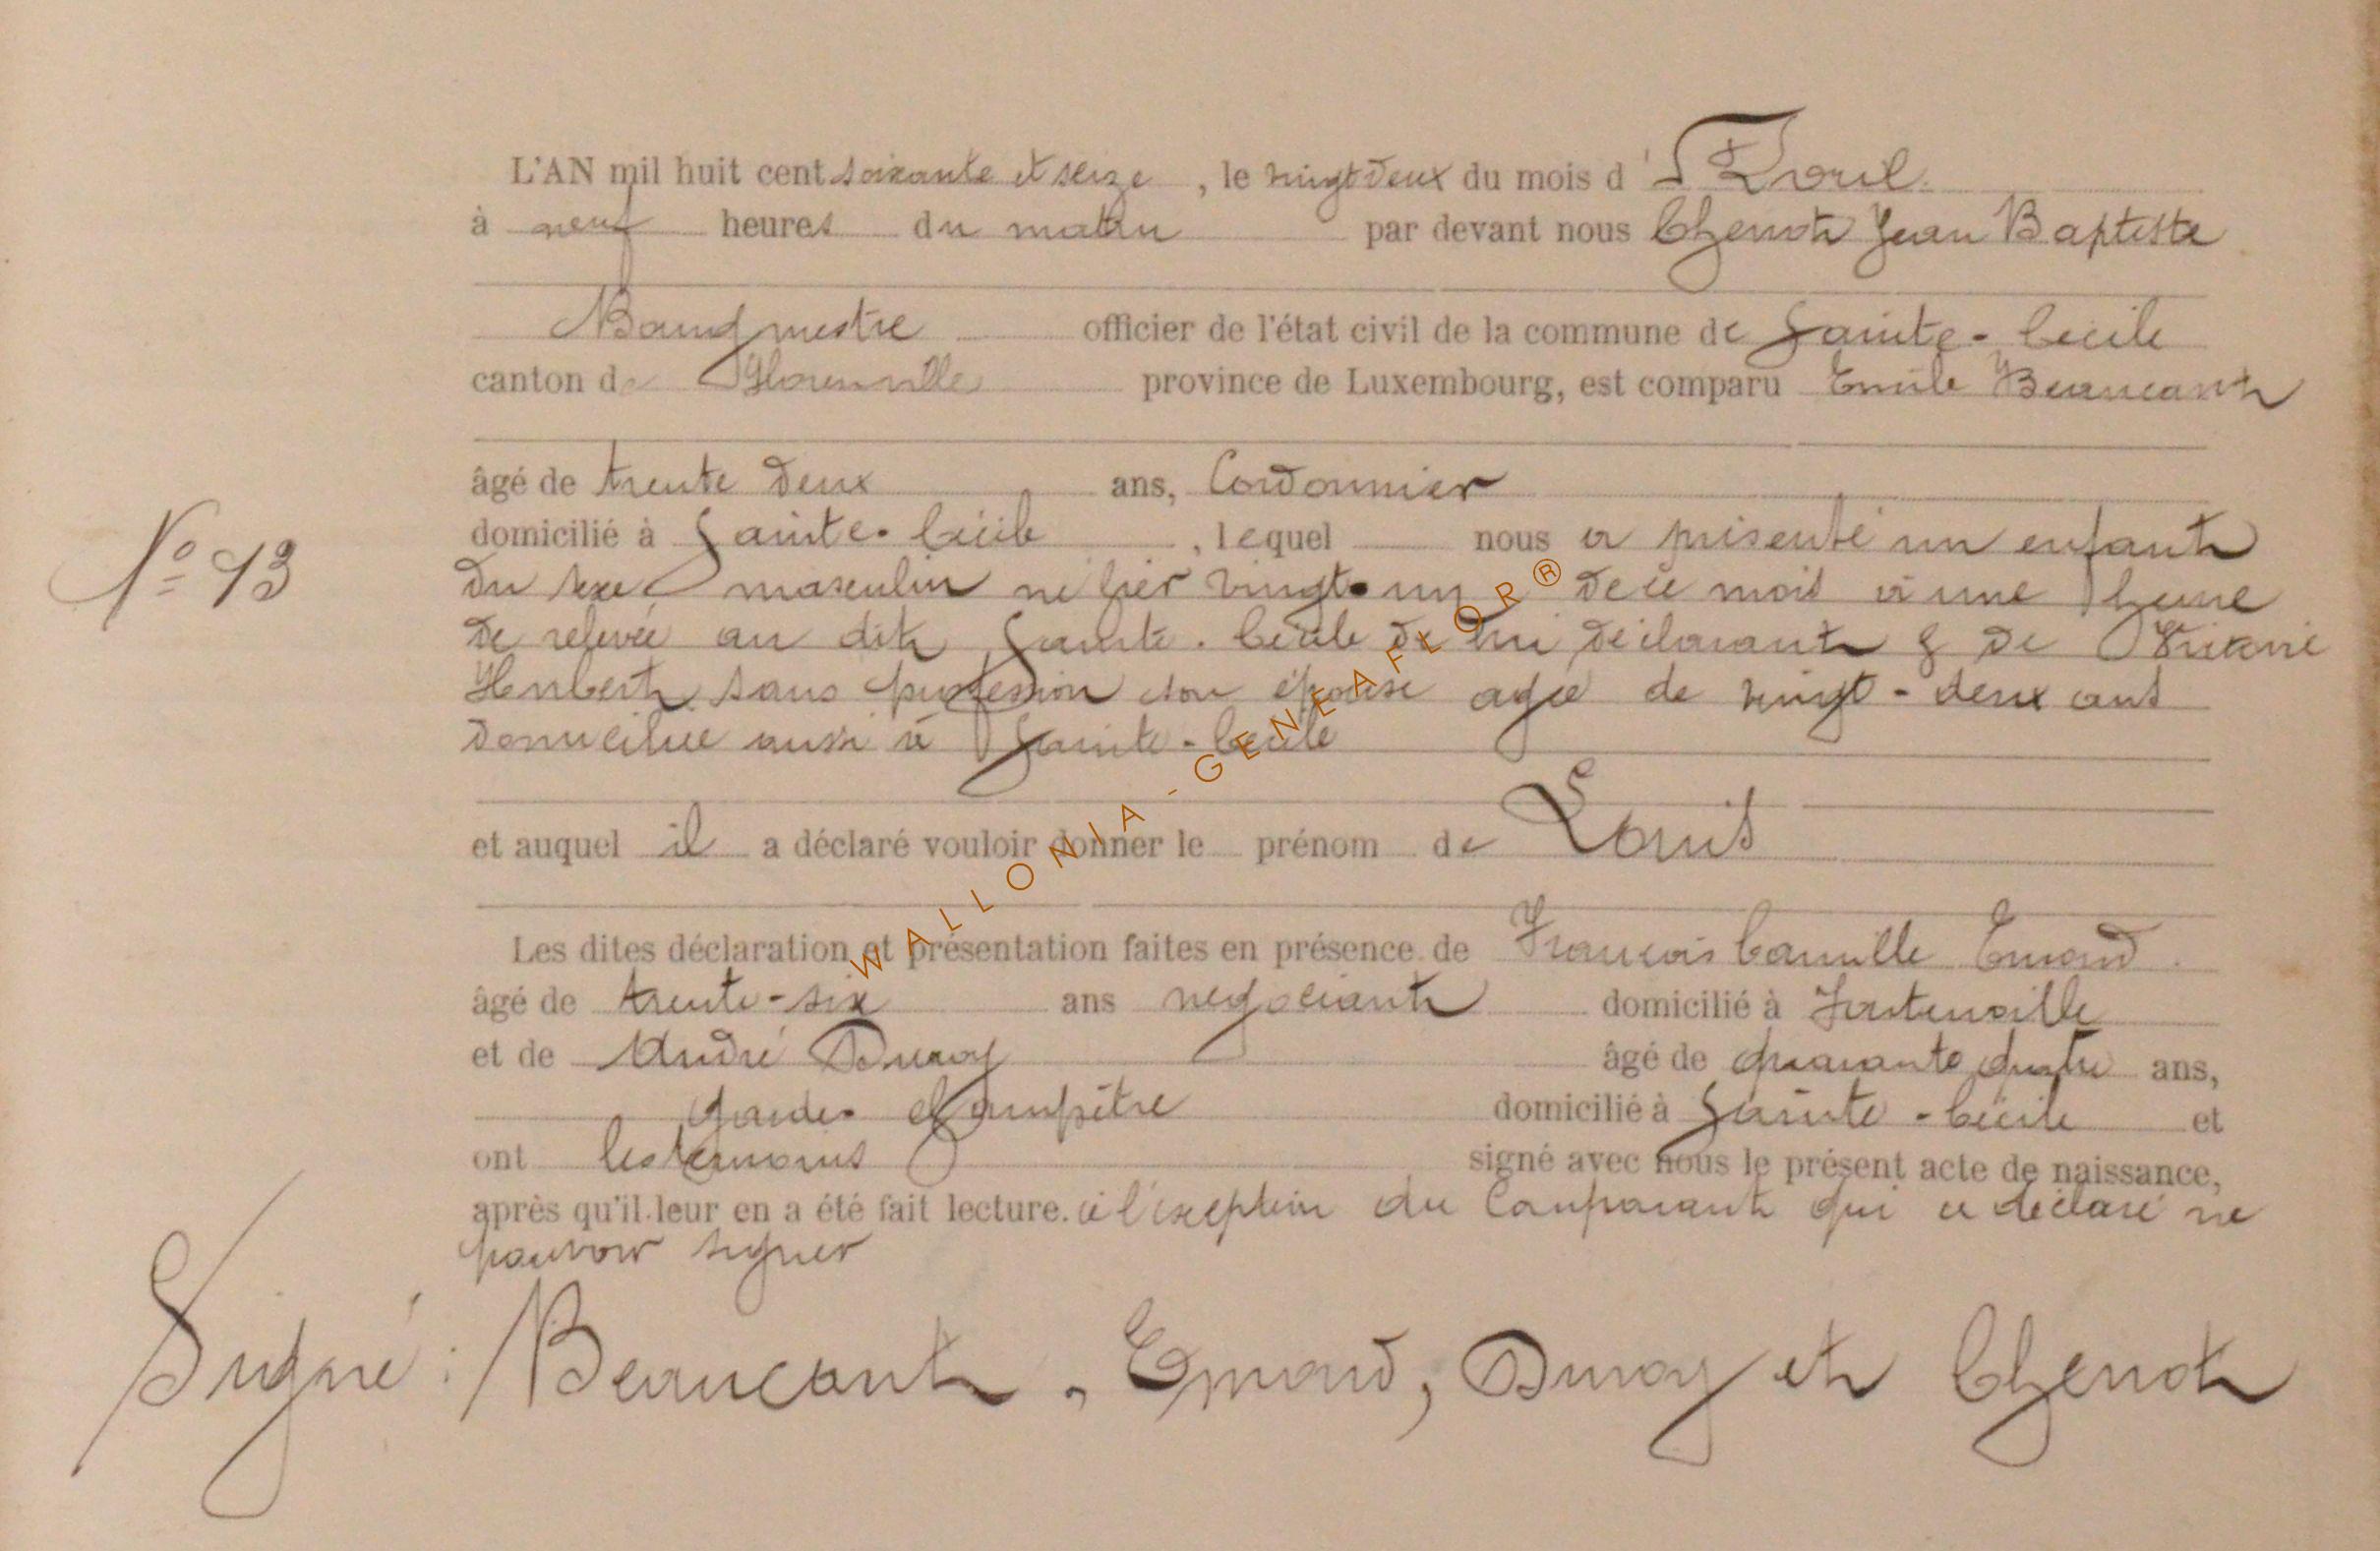 L'AN mil huit cent soixante et seize, le vingt deux du mois d'Avril
à neuf heures du matin par devant nous Chenot Jean Baptiste
Bourgmestre officier de l'état civil de la commune de Sainte-Cécile
canton de Florenville province de Luxembourg, est comparu Emile Beaucant
âgé de trente deux ans, Cordonnier
domicilié à Sainte-Cécile, lequel nous a présenté un enfant
N° 13
du sexe masculin né hier vingt-un de ce mois à une heure
de relevée au dit Sainte-Cécile de lui déclarant & de
Hubert sans profession son épouse agée de vingt-deux ans
domiciliée aussi à Sainte-Cécile
et auquel il a déclaré vouloir donner le prénom de Louis
Les dites déclaration et présentation faites en présence de François Camille Emond
âgé de trente-six ans négociant domicilié à Fontenoille
et de André Duroy âgé de quarante quatre ans,
garde-champêtre domicilié à Sainte-Cécile et
ont les témoins signé avec nous le présent acte de naissance,
après qu'il leur en a été fait lecture. à l'exception du Comparant qui a déclaré ne
pouvoir signer
Signé : Beaucant, Emond, Duroy et Chenot
WALLONIA-GENEAFLOR®